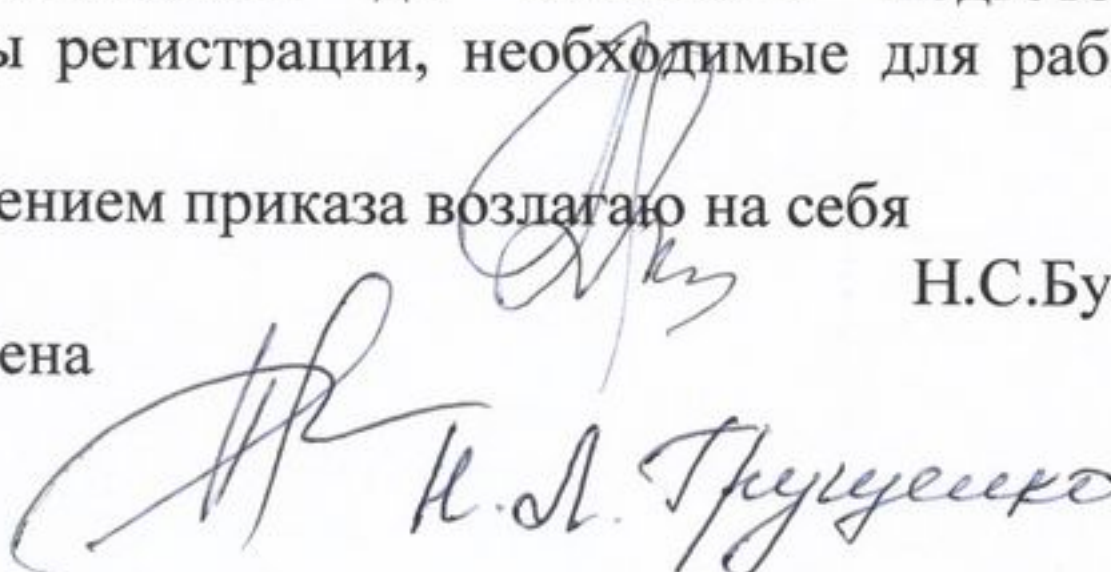 ы регистрации, необходимые для раб
ением приказа возлагаю на себя
Н.С.Бу
ена
Н.Л.